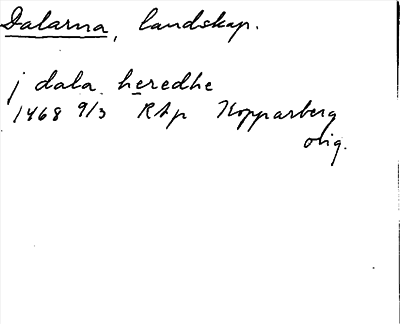 Dalarna, landskap.
j dala heredhe
1468 9/3 RAp Kopparberg
orig.